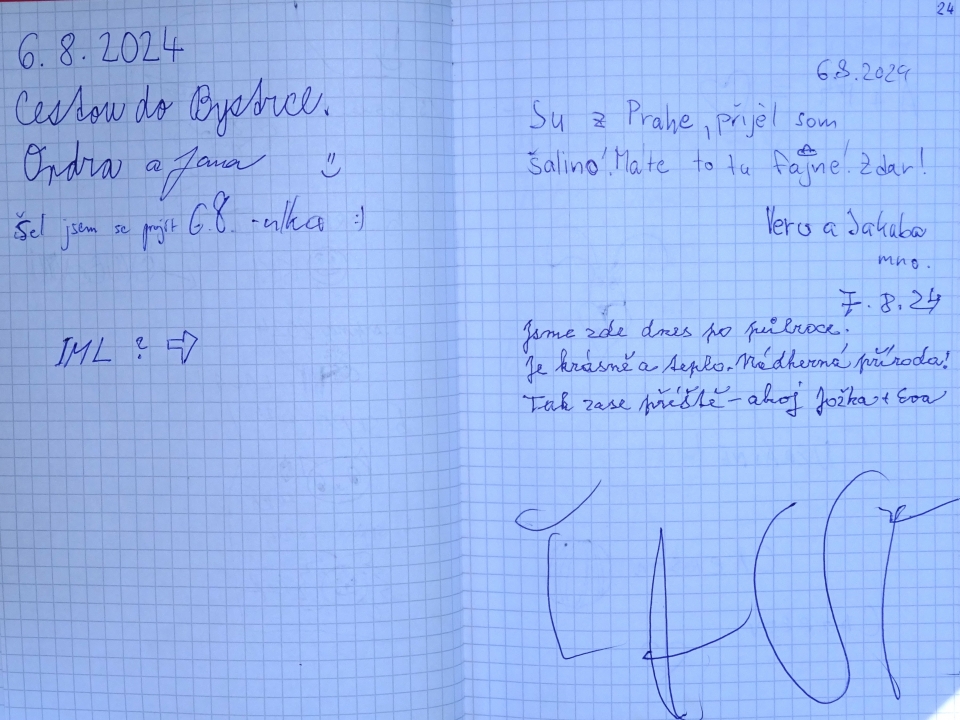 6. 8. 2024
Cestou do Bystrice.
Ondra a Jana
Šel jsem se projít 6.8. -nlka :)
IML ?
24
6.8.2024
Su z Prahe, přijèl som
šalino! Mate to tu fajne! Zdar!
Veru a Jakuba
mno.
7. 8. 24
Jsme zde dnes po půlroce.
Je krásně a teplo. Nádherná příroda!
Tak zase příště - ahoj Jožka + Eva